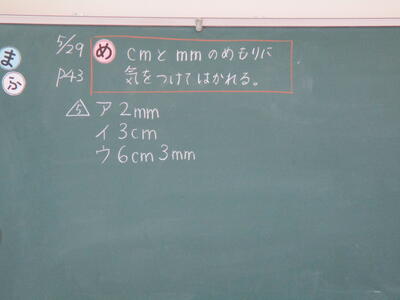 5/29
め cmとmmのめもりに
P43
気をつけてはかれる。
ま
ふ
5 ア 2mm
イ 3cm
ウ 6cm 3mm